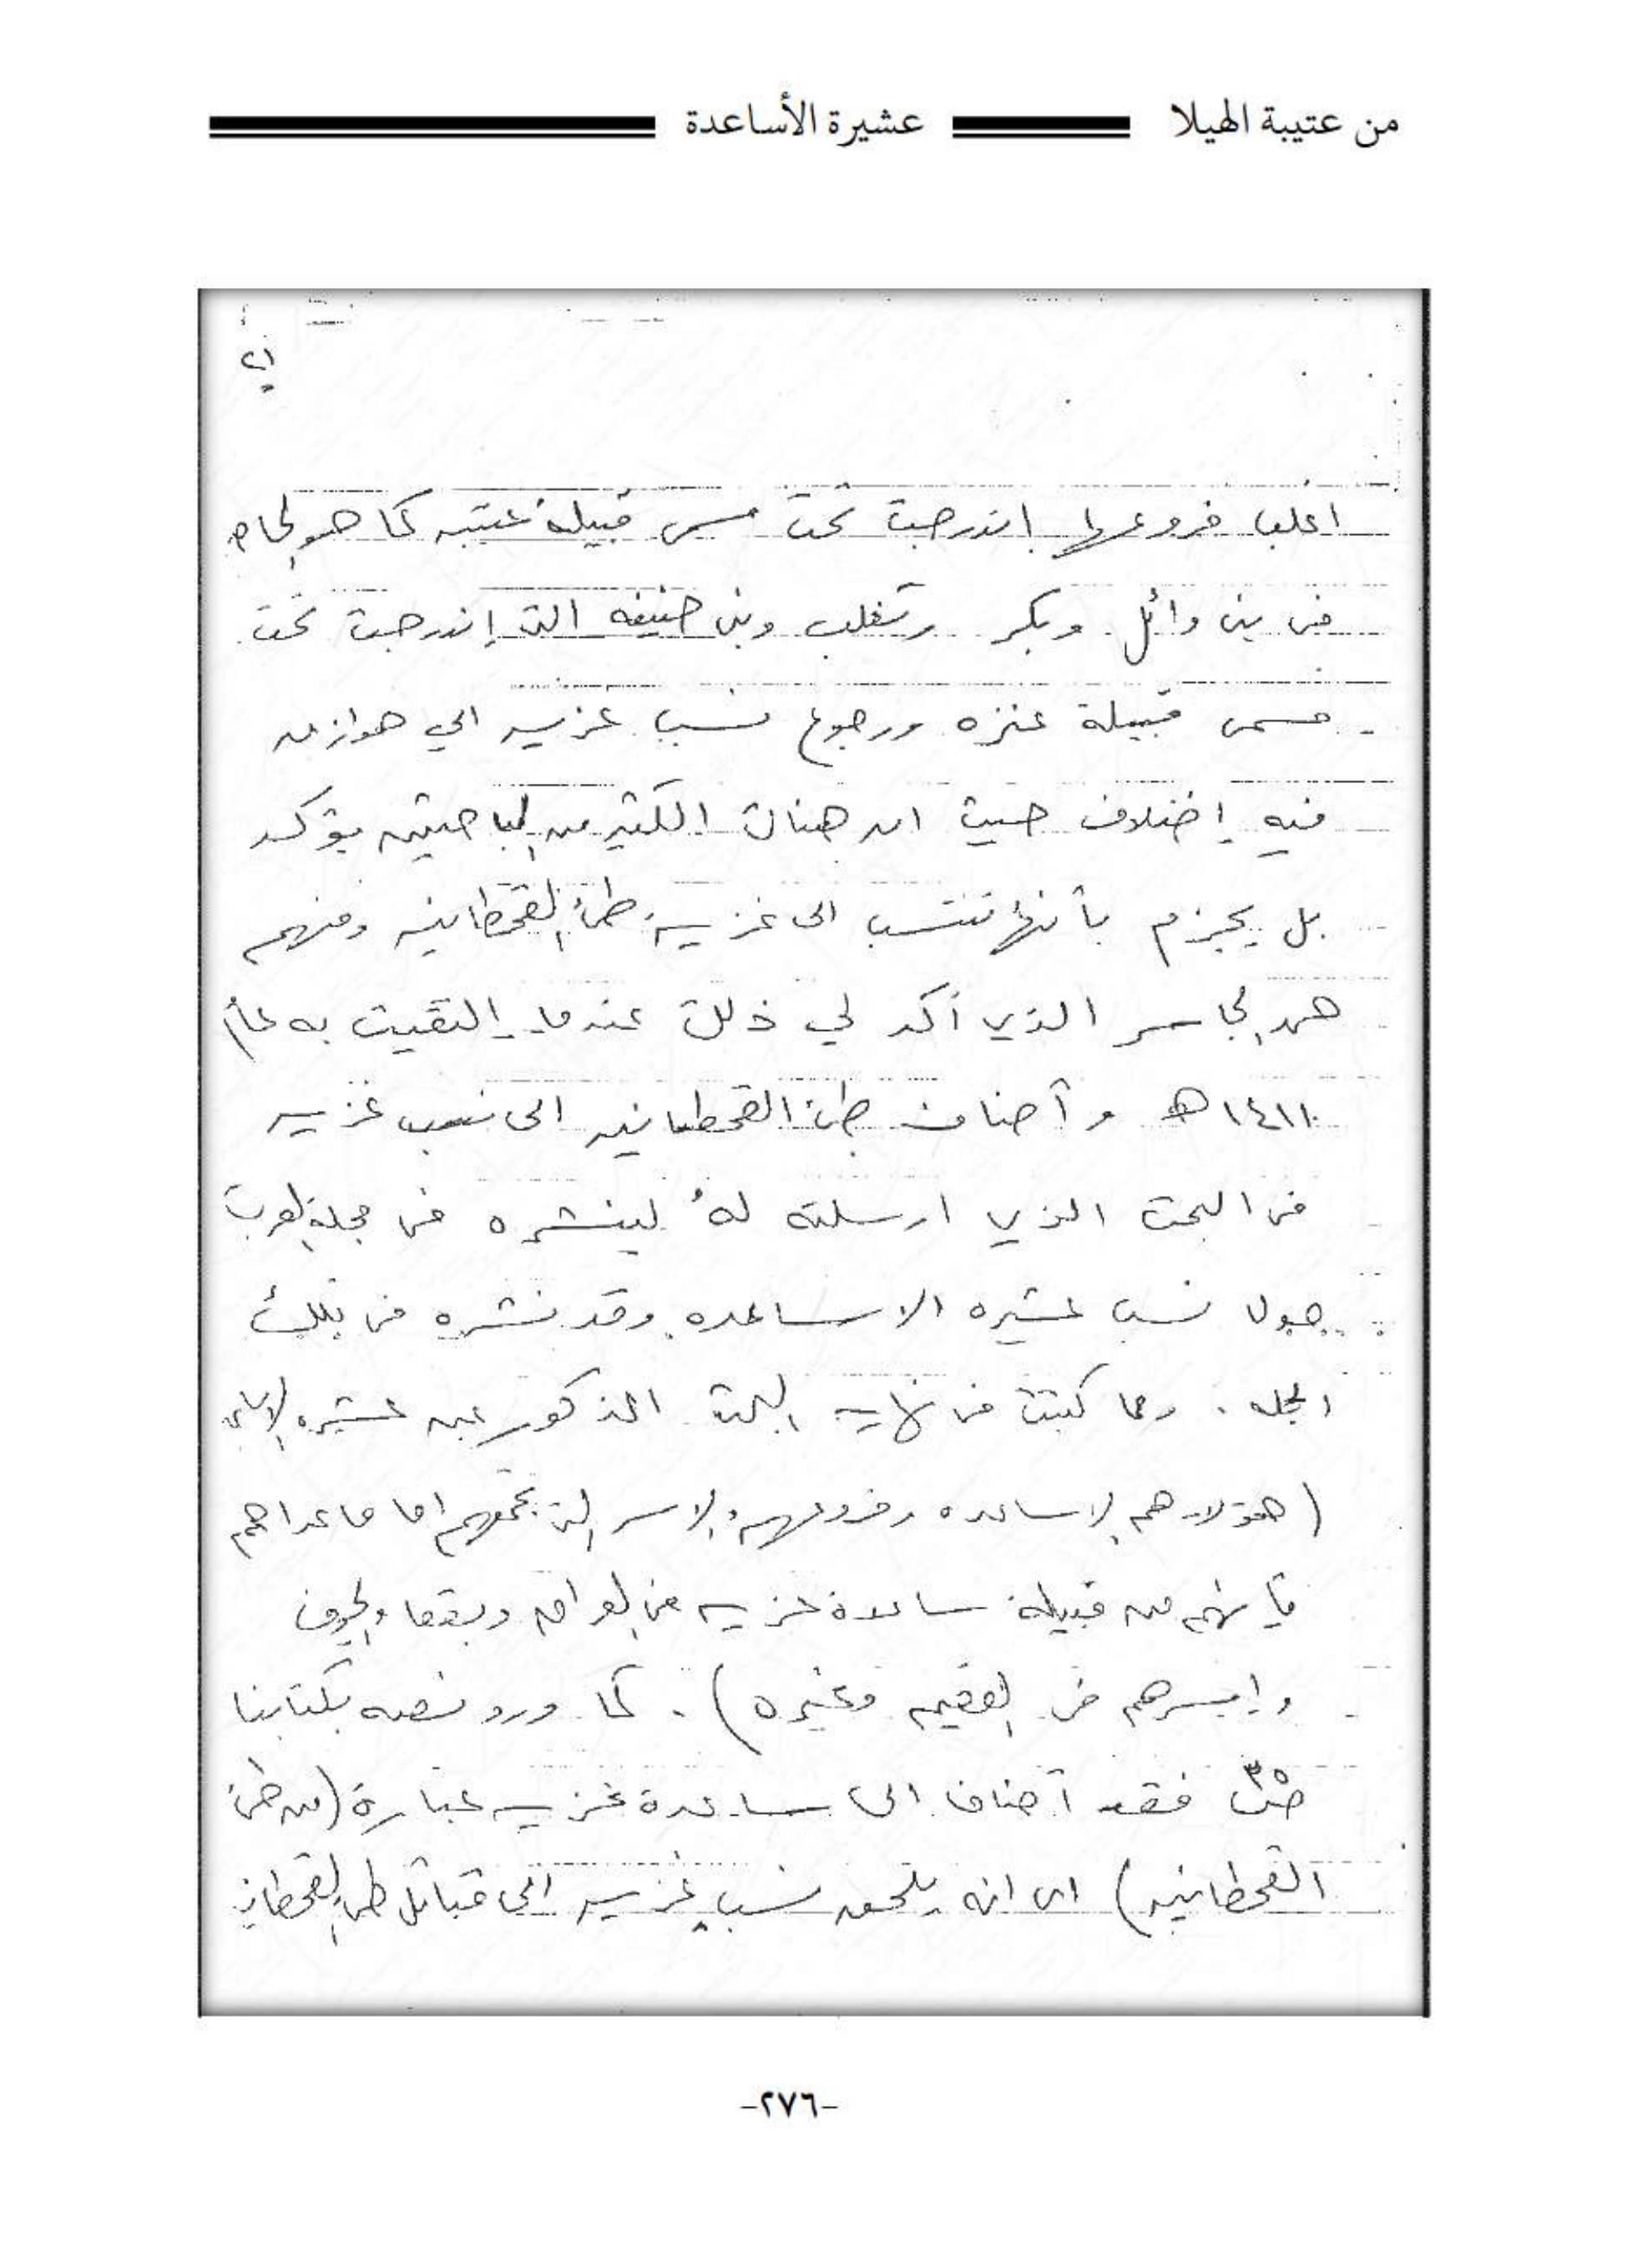 من عتيبة الهيلا
عشيرة الأساعدة
اغلب فروعها إندرجت تحت مسمى قبيلة عتيبه كما هو الحال
في بني وائل وبكر وتغلب وبني حنيفه التي إندرجت تحت
مسمى قبيلة عنزه ورجوع نسب غزيه الي هوازن
فيه إختلاف حيث ان هناك الكثير من الباحثين يؤكد
بل يجزم بأنها تنتسب الى غزيه طيء القحطانيه ومنهم
حمد الجاسر الذي أكد لي ذلك عندما إلتقيت به عام
١٤١١هـ وأضاف طيء القحطانيه الى نسب غزيه
في البحث الذي ارسلته لهُ لينشره في مجلة العرب
حول نسب عشيره الاساعده وقد نشره في تلك
المجله . ومما كتبت في نهاية البحث المذكور عن عشيره
(هؤلاء هم الاساعده وفروعهم والاسر التي تجمعهم اما ماعداهم
فأنهم من قبيلة ساعدة غزيه في العراق وبقعا والجوف
وإسرهم في القصيم وغيره) . كما ورد نصه بكتابنا
فقد أضاف الى ساعدة غزيه عبارة (من طيء
القحطانيه) اى انه يلحق نسب غزيه الى قبائل طيء القحطانيه
-٢٧٦-